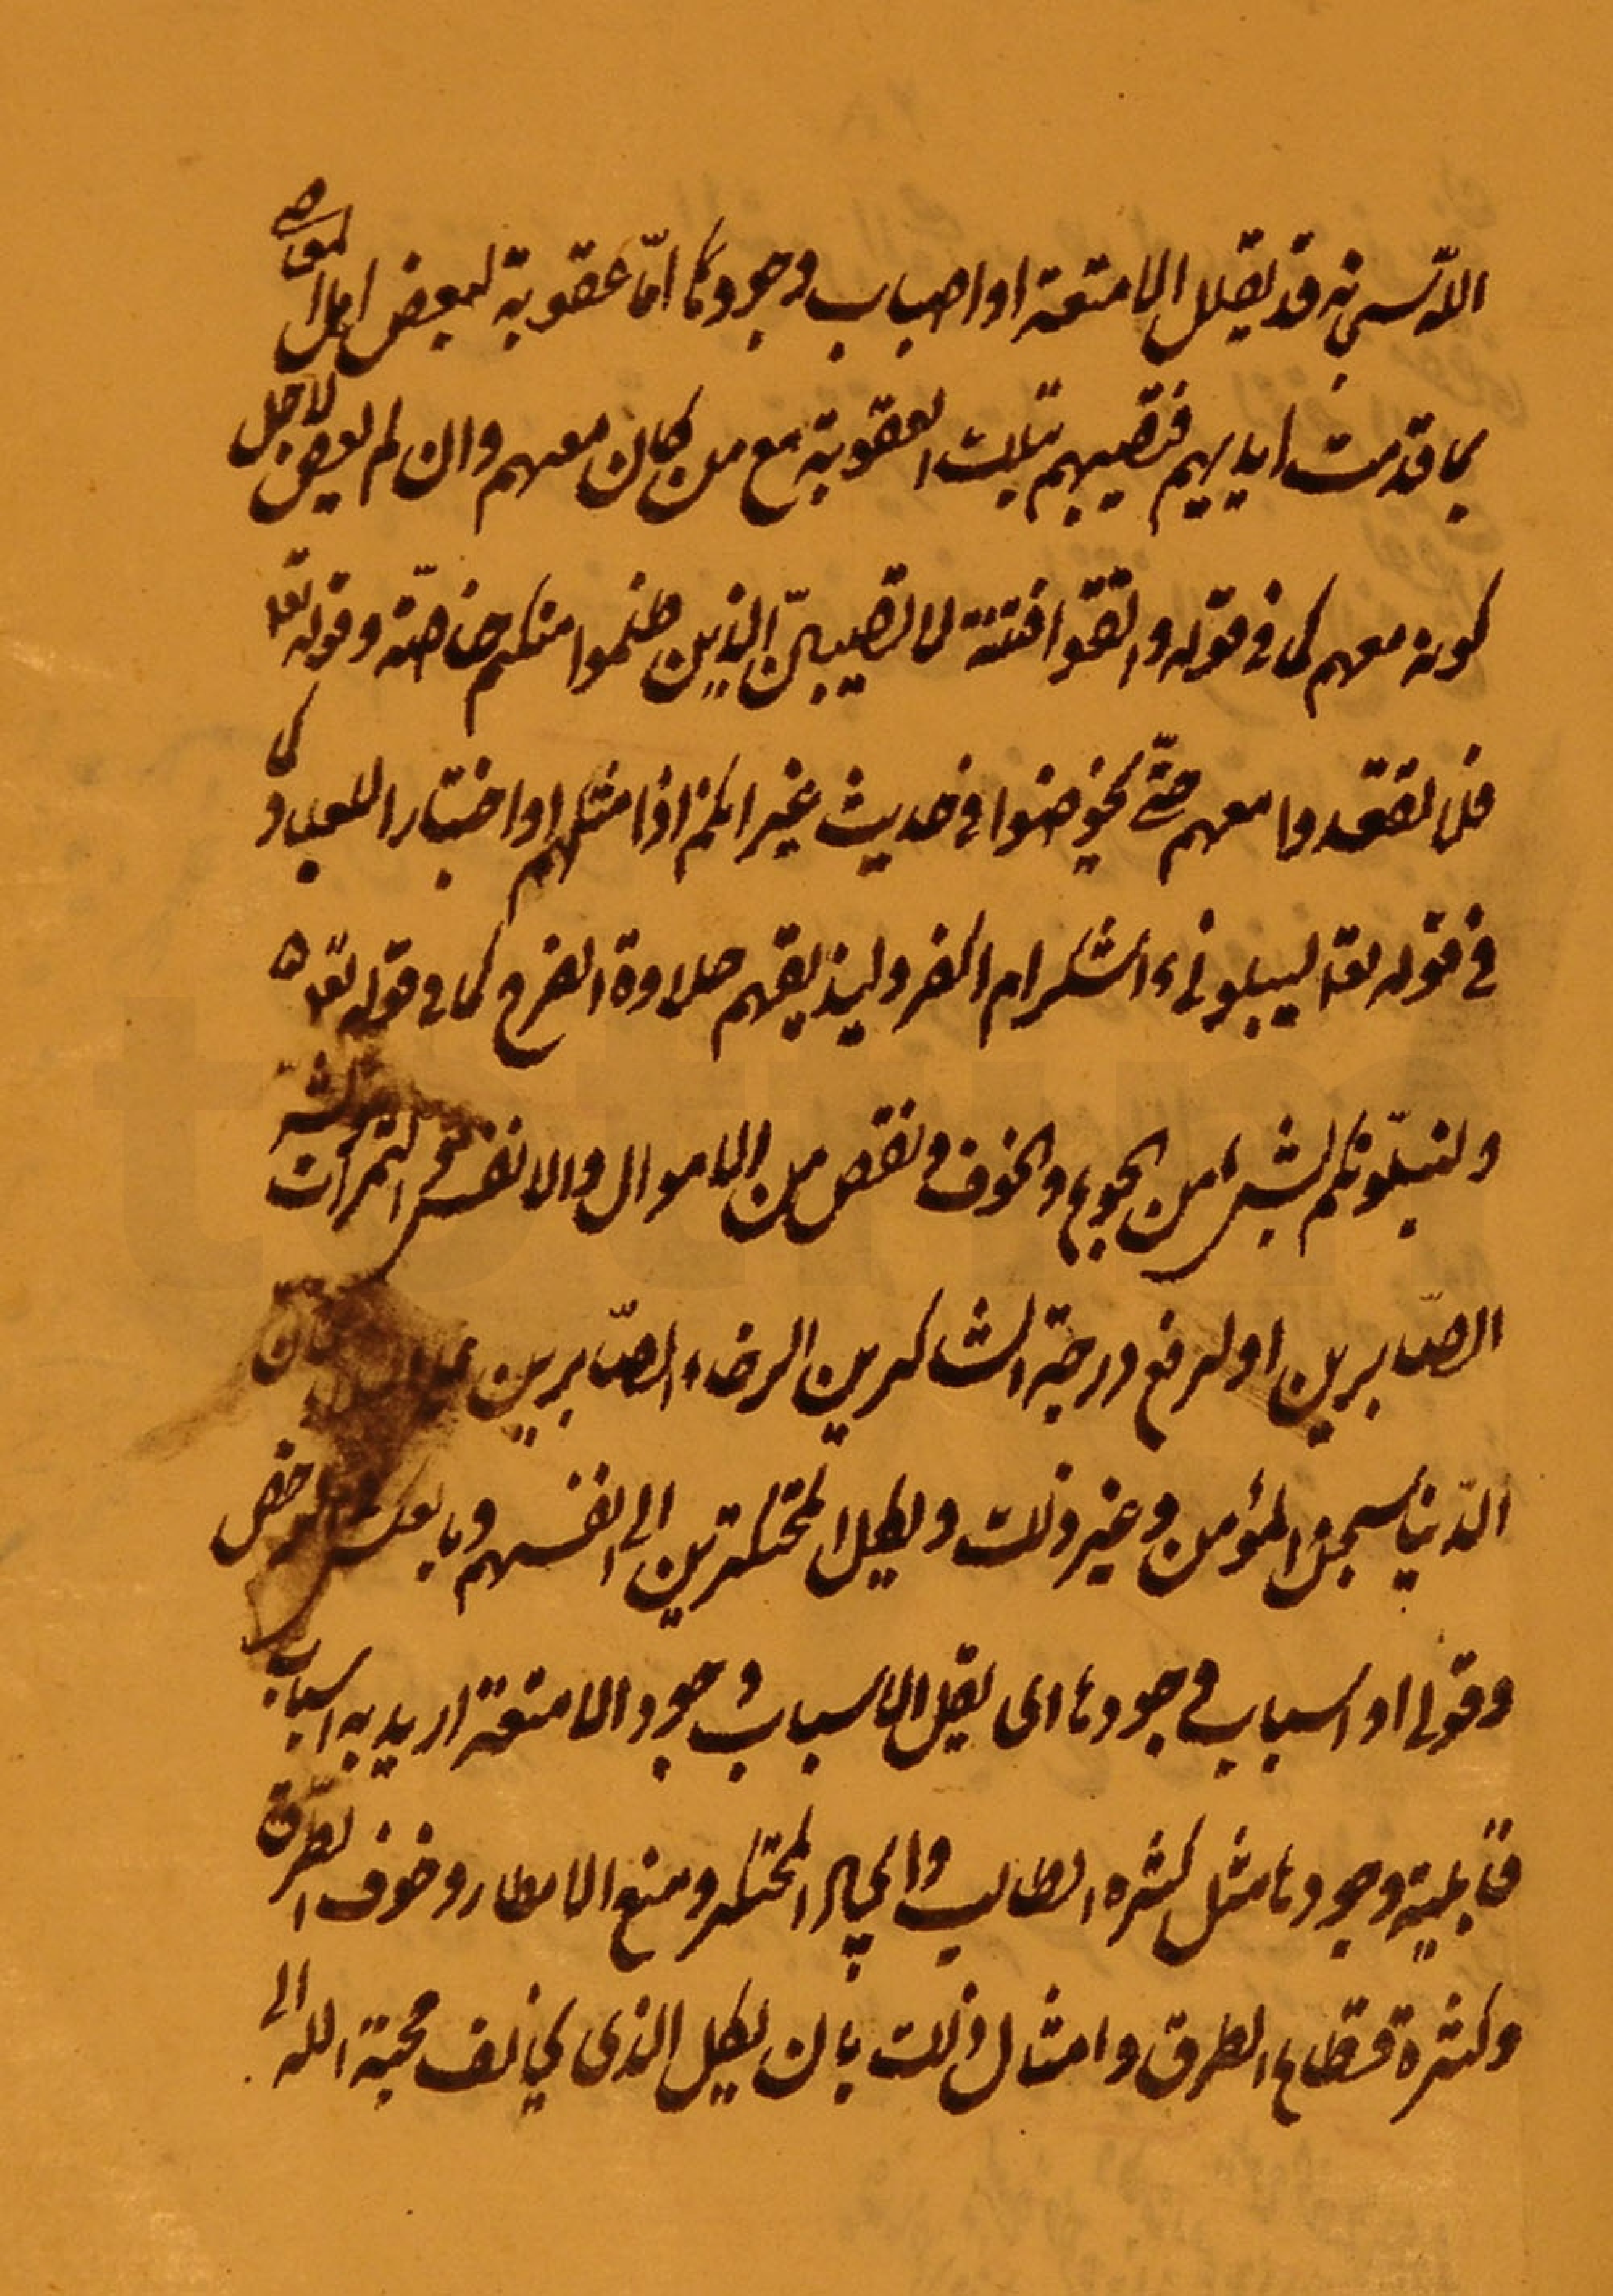 الله سبحانه قد يقلل الامتعة او اسباب وجودها امّا عقوبة لبعض اهل المعاصى
بما قدمت ايديهم فتصيبهم تلك العقوبة مع من كان معهم وان لم يعص لاجل
كونه معهم كما فى قوله واتقوا فتنة لا تصيبنّ الذين ظلموا منكم خاصّة وقوله تعا
فلا تقعدوا معهم حتّى يخوضوا فى حديث غيره انكم اذا مثلهم او اختبار العباد كما
فى قوله تعا ليبلونى ءاشكر ام اكفر وليذيقهم حلاوة الفرج كما فى قوله تعا
ولنبلّونكم بشىء من الجوع والخوف ونقص من الاموال والانفس والثمرات وبشّر
الصّابرين او لرفع درجة الشاكرين الرخاء والصّابرين
الدّنيا سجن المؤمن وغير ذلك ويكل المحتكرين الى انفسهم
وقولى او اسباب وجودها اى يقلل الاسباب وجود الامتعة اريد به اسباب
قابلية وجودها مثل كثرة الطالب والجبار المحتكر ومنع الامطار وخوف الطرق
وكثرة قطاع الطرق وامثال ذلك بان يكل الذى يخالف محبة الله الى